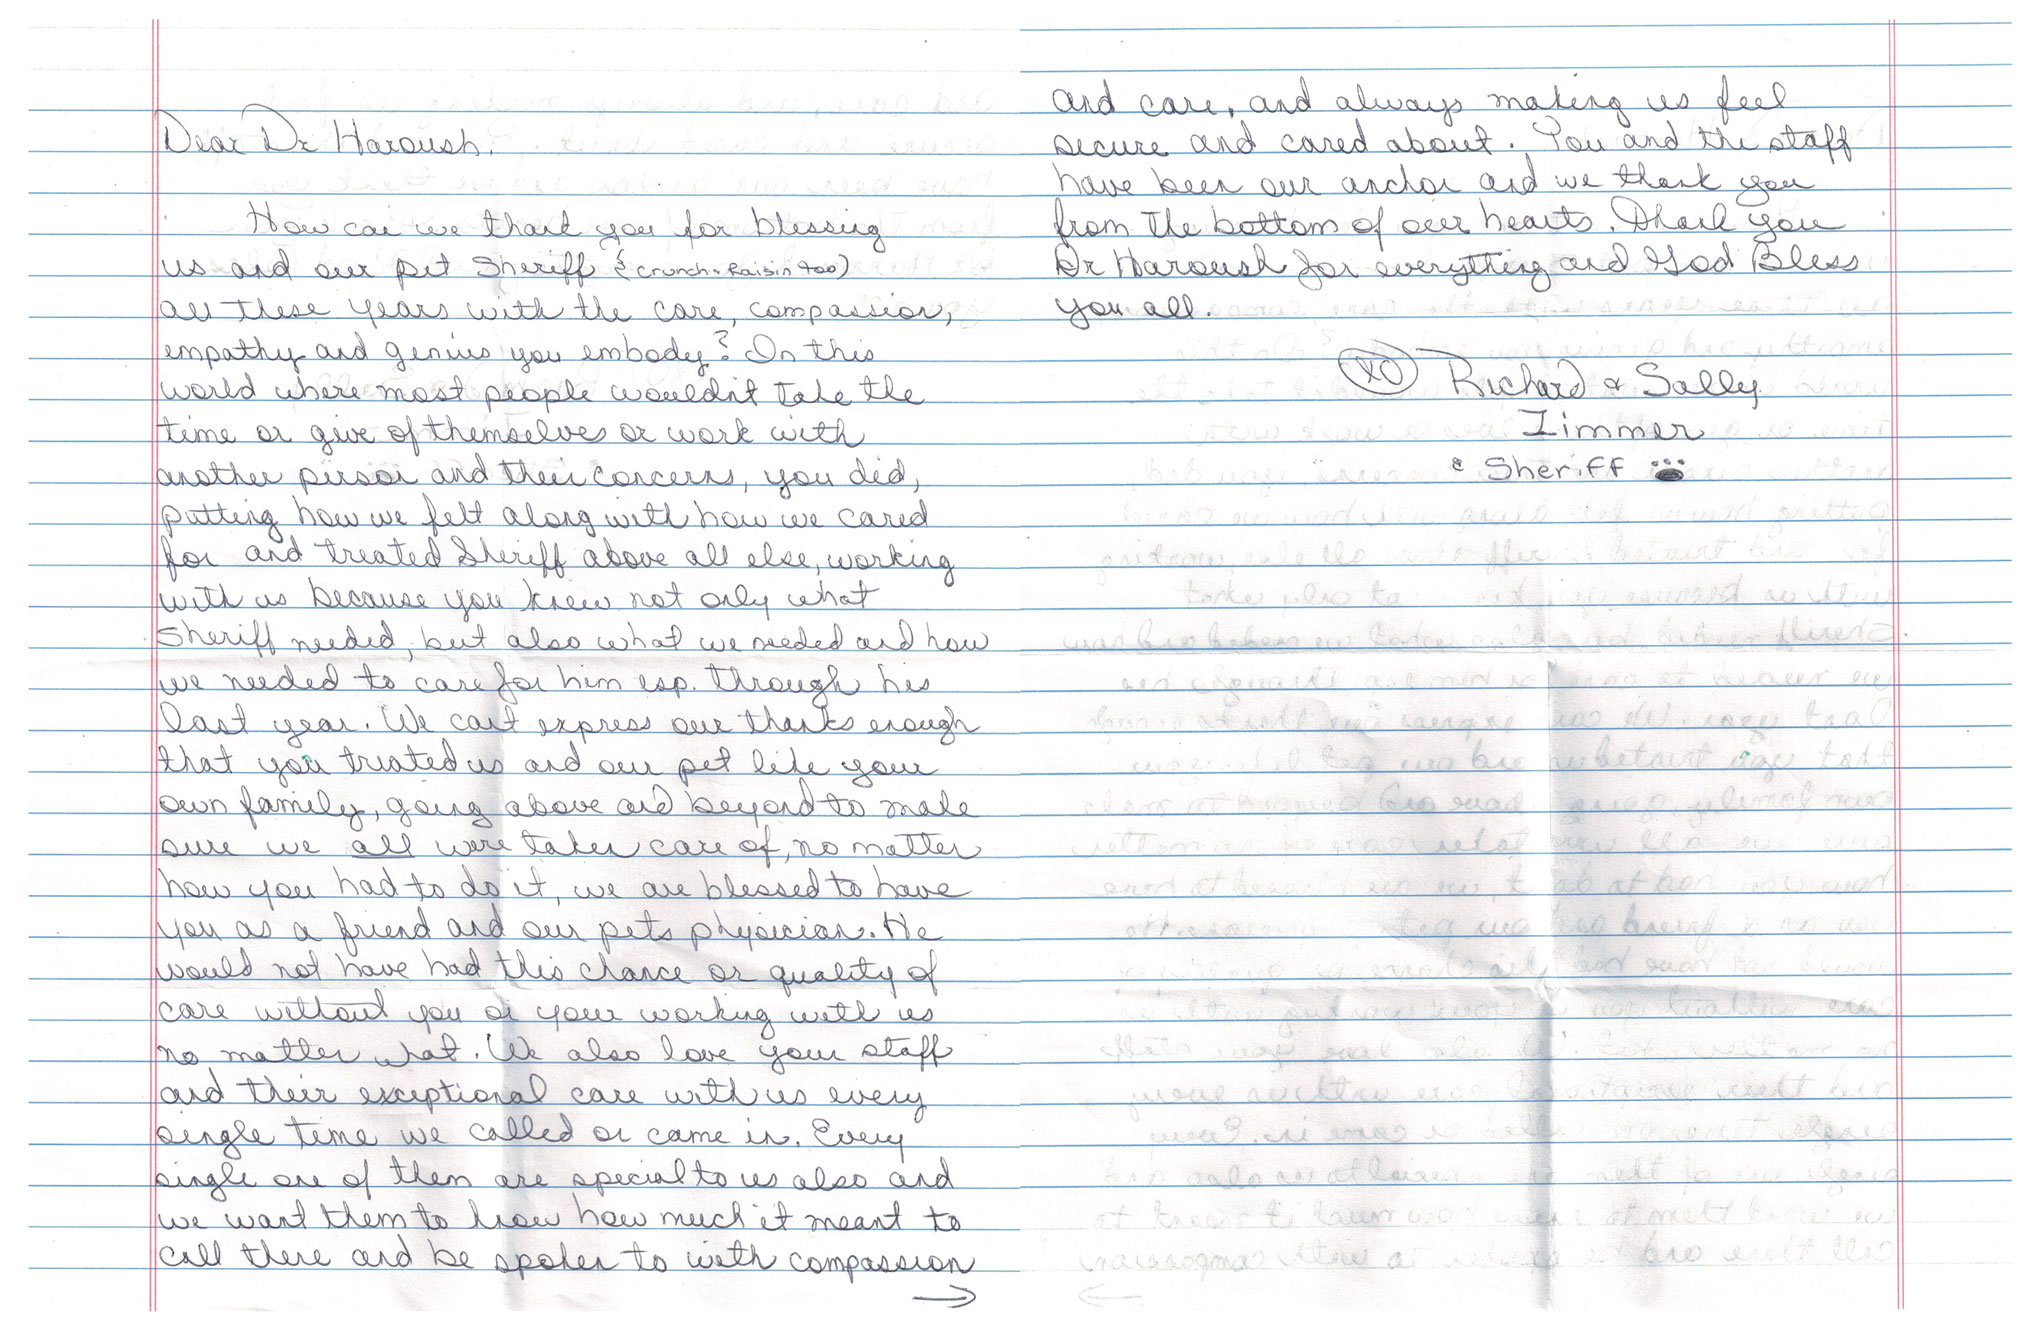 Dear Dr Haroush,
How can we thank you for blessing
us and our pet Sheriff & (Crunch + Raisin too)
all these years with the care, compassion,
empathy and genius you embody? In this
world where most people wouldn't take the
time or give of themselves or work with
another person and their concerns, you did,
putting how we felt along with how we cared
for and treated Sheriff above all else, working
with us because you knew not only what
Sheriff needed, but also what we needed and how
we needed to care for him esp. through his
last year. We can't express our thanks enough
that you treated us and our pet like your
own family, going above and beyond to make
sure we all were taken care of, no matter
how you had to do it, we are blessed to have
you as a friend and our pets physician. He
would not have had this chance or quality of
care without you or your working with us
no matter what. We also love your staff
and their exceptional care with us every
single time we called or came in. Every
single one of them are special to us also and
we want them to know how much it meant to
call there and be spoken to with compassion
→
and care, and always making us feel
secure and cared about. You and the staff
have been our anchor and we thank you
from the bottom of our hearts. Thank you
Dr Haroush for everything and God Bless
you all.
XO Richard & Sally
Zimmer
& Sheriff